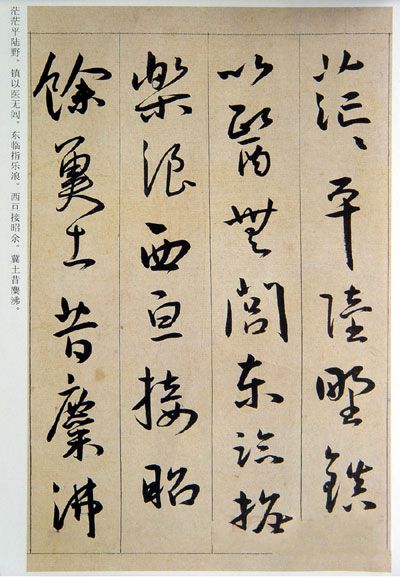 茫〻平陸野鎮
以醫無閭東臨指
樂浪西亘接昭
餘冀土昔麋沸
茫茫平陆野。镇以医无闾。东临指乐浪。西亘接昭余。冀土昔麋沸。